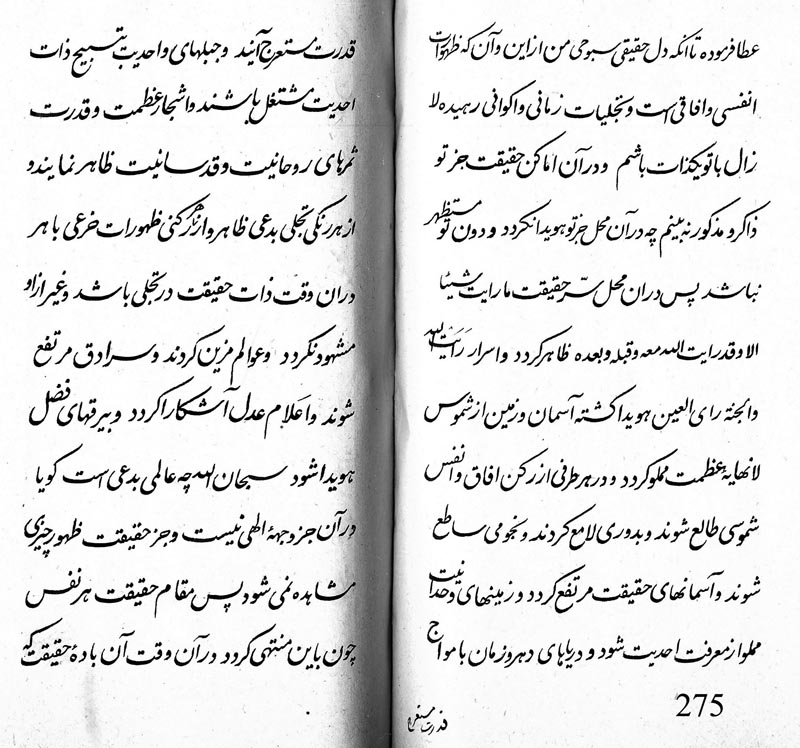 عطا فرموده تا انکه دل حقیقی سبوحی من از این و آن که ظهورات
انفسی و افاقی است و تجلیات زمانی و اکوانی رهیده لا
زال با تو یکذات باشم و در آن اماکن حقیقت جز تو
ذاکر و مذکور نه بینم چه در آن محل جز تو هویدا نکردد و دون تو مستظهر
نباشد پس در ان محل سرّ حقیقت ما رایت شیئا
الا و قد رایت الله معه و قبله و بعده ظاهر کردد و اسرار رَایَت الله
والجنة رای العین هویدا کشته آسمان و زمین از شموس
لانهایهٔ عظمت مملو کردد و در هر طرفی از رکن افاق و انفس
شموسی طالع شوند و بدوری لامع کردند و نجومی ساطع
شوند و آسمانهای حقیقت مرتفع کردد و زمینهای وحدانیت
مملو از معرفت احدیت شود و دریاهای دهر و زمان با مواج
قدرت مستعرج
275
قدرت مستعرج آیند و جبلهای واحدیت بتسبیح ذات
احدیت مشتغل باشند و اشجار عظمت و قدرت
ثمرهای روحانیت و قدسانیت ظاهر نمایند و
از هر رنکی تجلی بدعی ظاهر و از هر رکنی ظهورات خرعی باهر
در ان وقت ذات حقیقت در تجلی باشد و غیر از او
مشهود نکردد و عوالم مزین کردند و سرادق مرتفع
شوند و اَعلام عدل آشکارا کردد و بیرقهای فضل
هویدا شود سبحان الله چه عالمی بدعی است کویا
در آن جز وجههٔ الهی نیست و جز حقیقت ظهور چیزی
مشاهده نمی شود پس مقام حقیقت هر نفس
چون باین منتهی کردد در آن وقت آن بادهٔ حقیقت که